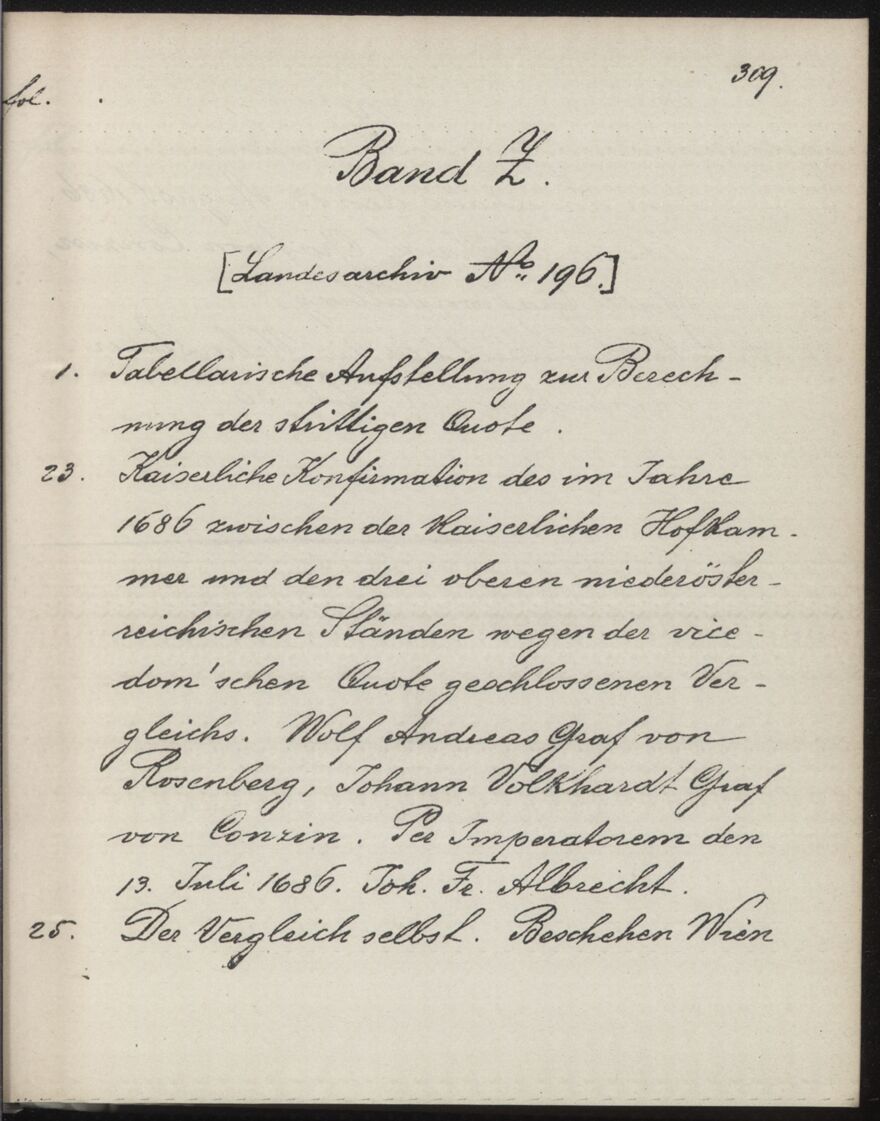 309.
fol.
Band Z.
[Landesarchiv No. 196.]
1. Tabellarische Aufstellung zur Berech-
nung der strittigen Quote.
23. Kaiserliche Konfirmation des im Jahre
1686 zwischen der Kaiserlichen Hofkam-
mer und den drei oberen niederöster-
reichischen Ständen wegen der vice-
dom'schen Quote geschlossenen Ver-
gleichs. Wolf Andreas Graf von
Rosenberg, Johann Volkhardt Graf
von Conzin. Per Imperatorem den
13. Juli 1686. Joh. Fr. Albrecht.
25. Der Vergleich selbst. Beschehen Wien